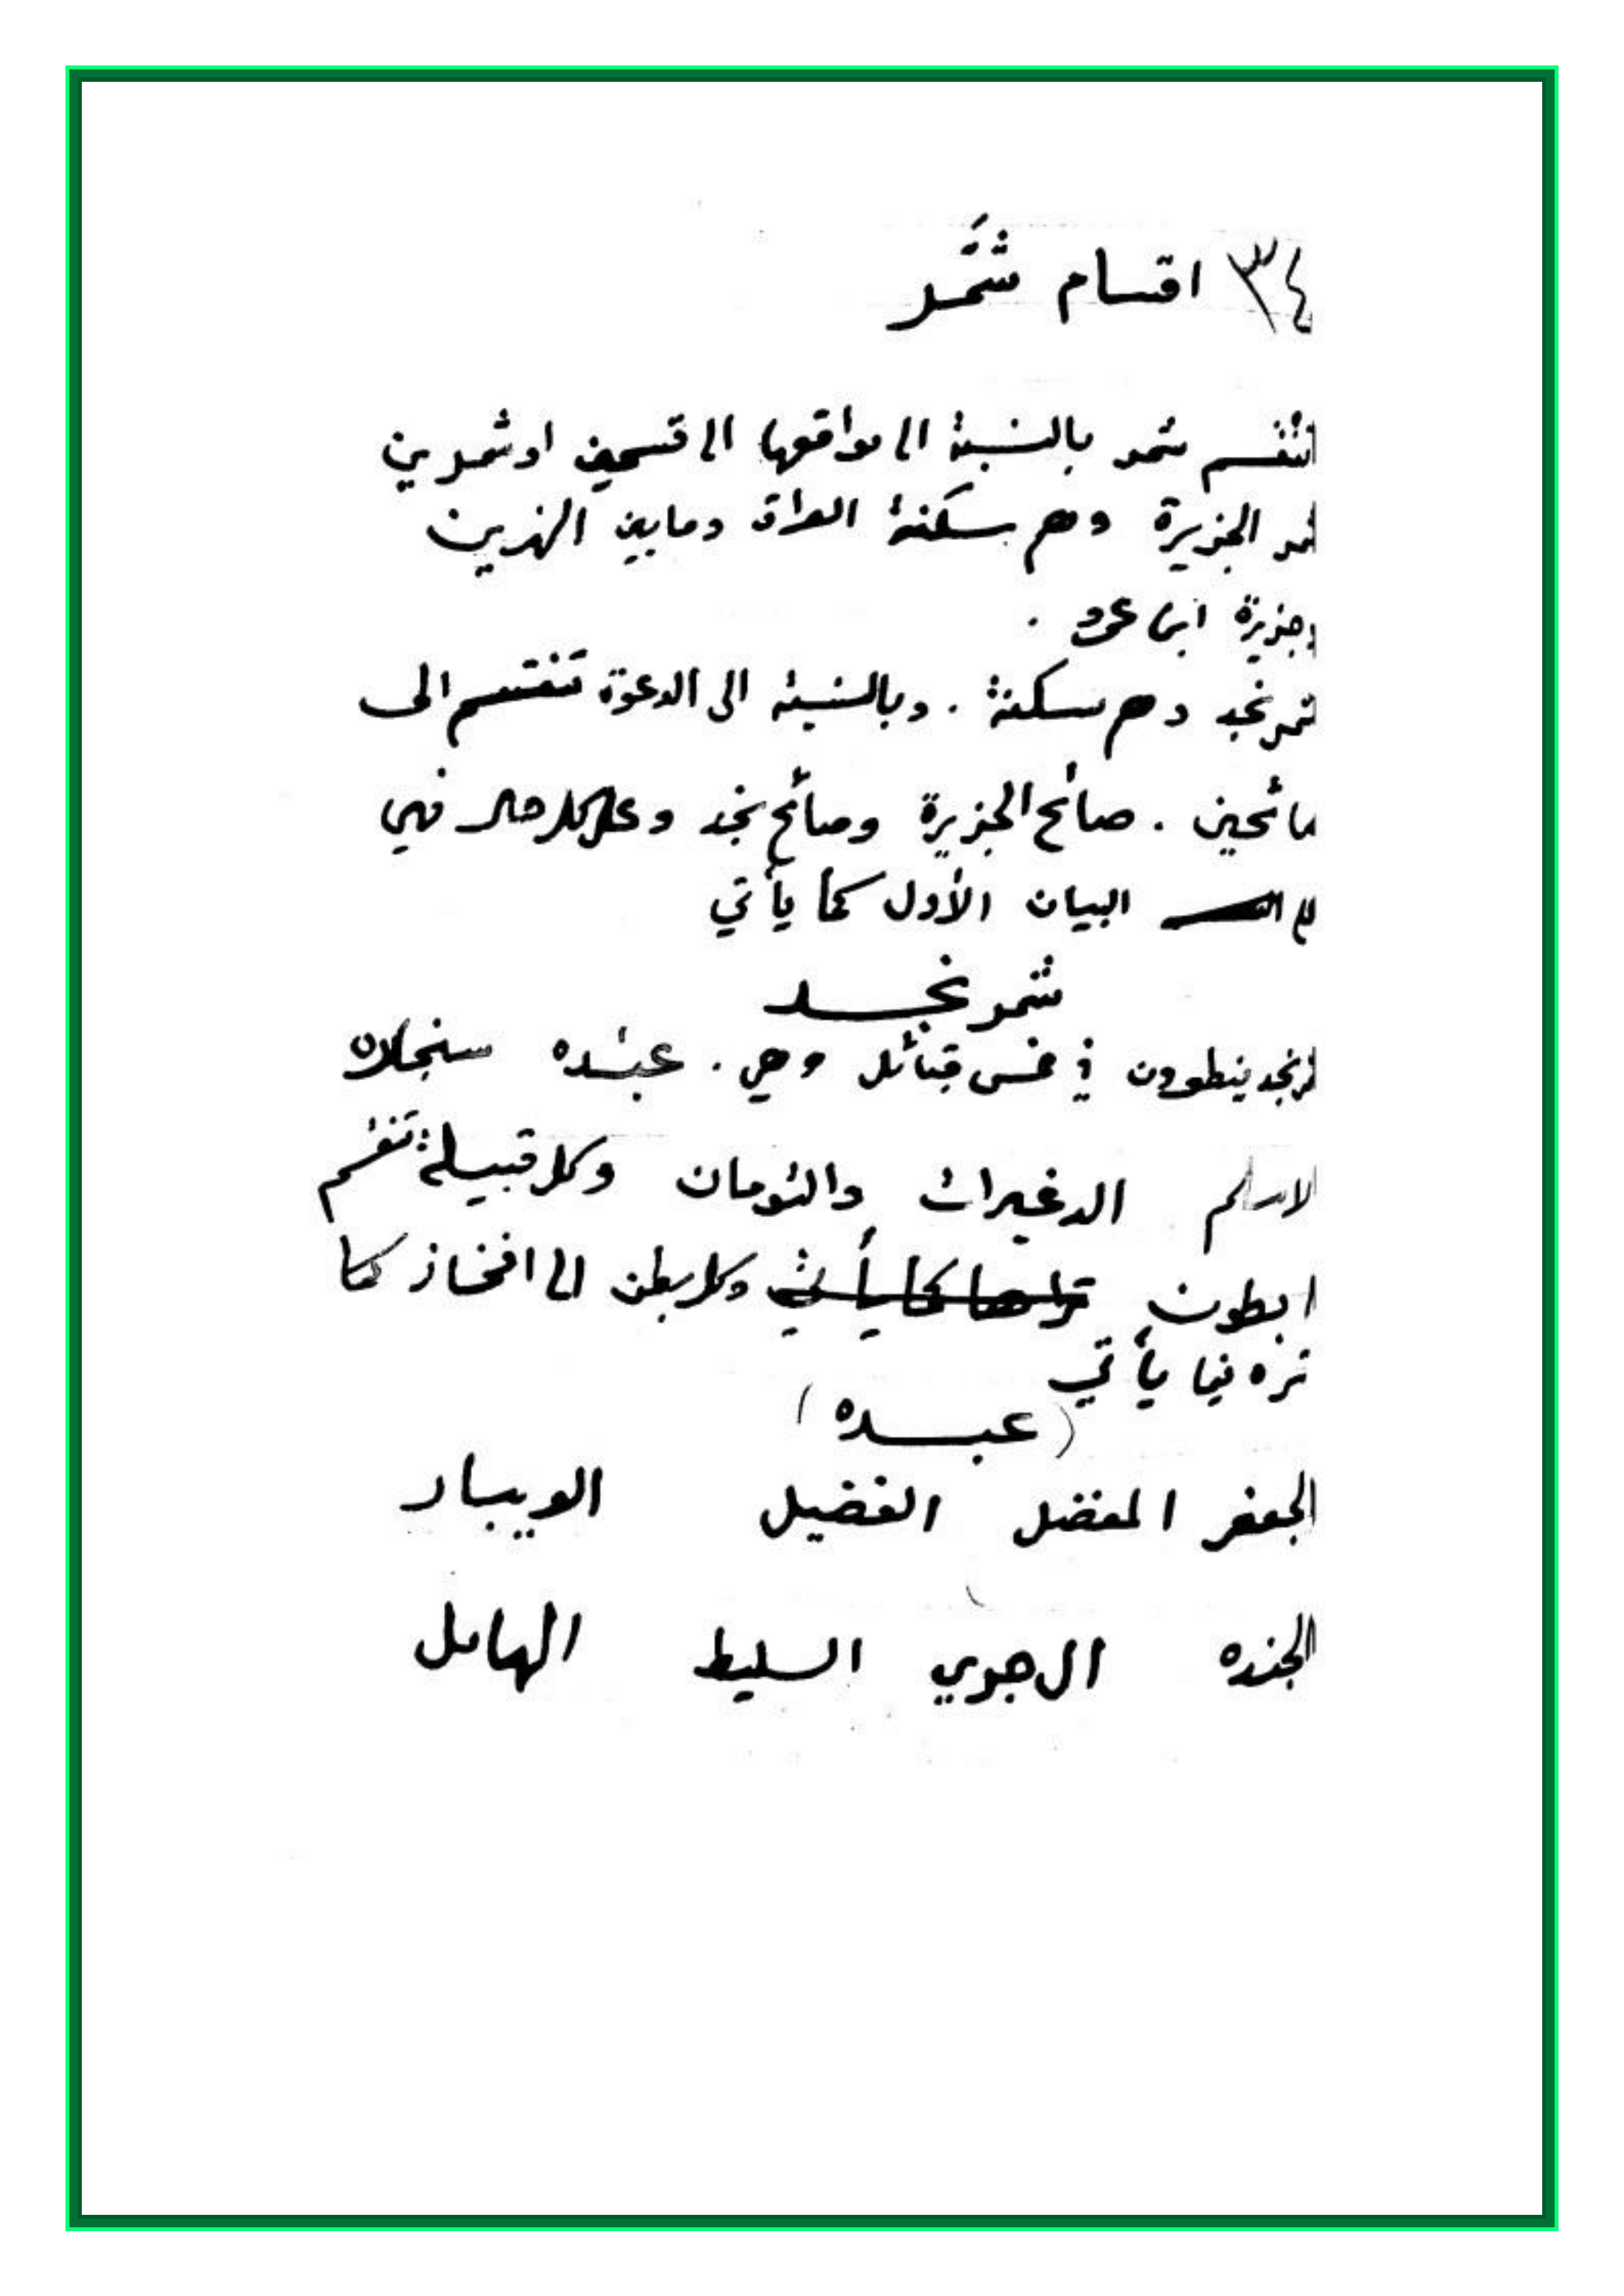 ٣٤ اقسام شمَّر
تنقسم شمر بالنسبة الى مواقعها الى قسمين او شمرين
شمر الجزيرة وهم سكنة العراق ومابين النهرين
وجزيرة ابن عمرو .
شمر نجد وهم سكنة . وبالنسبة الى الدعوة تنقسم الى
صائحين . صائح الجزيرة وصائح نجد وعلى كل حال فهي
البيان الأول كما يأتي
شمر نجد
نجد ينطوون في خمس قبائل وهي . عبده سنجاره
الاسلم الدغيرات والتومان وكل قبيلة تنقسم
بطون تراها كما يأتي وكل بطن الى افخاذ كما
تره فيما يأتي
(عبده)
الجعفر المفضل الفضيل الويبار
الجنده ال جري السليط الهامل